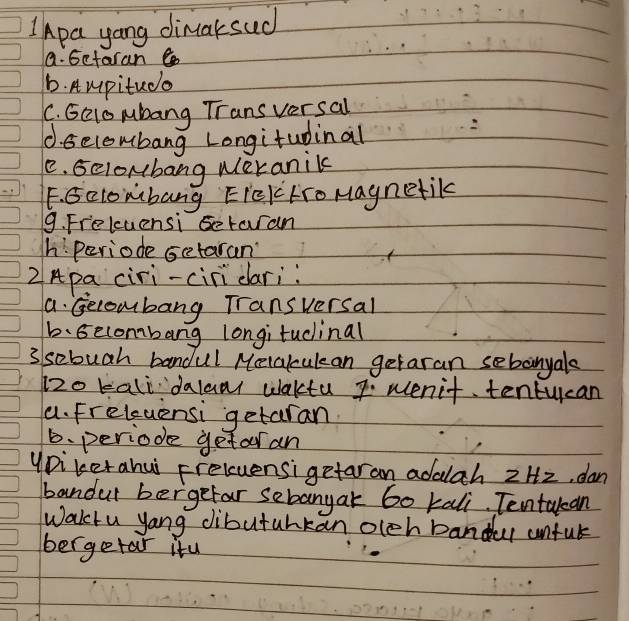 1 Apa yang dimaksud
a. Getaran
b. Ampitudo
C. Gelombang Transversal
d. Gelombang Longitudinal
e. Gelombang Mekanik
F. Gelombang Elektromagnetik
g. Frekuensi Getaran
h. Periode Getaran
2 Apa ciri-ciri dari :
a. Gelombang Transversal
b. Gelombang longitudinal
3 sebuah bandul Melakukan getaran sebanyak
120 kali dalam waktu 1 menit. tentukan
a. Frekuensi getaran
b. periode getaran
4 Diketahui Frekuensi getaran adalah 2Hz. dan
bandul bergetar sebanyak 60 kali. Tentukan
Waktu yang dibutuhkan oleh bandul untuk
bergetar itu